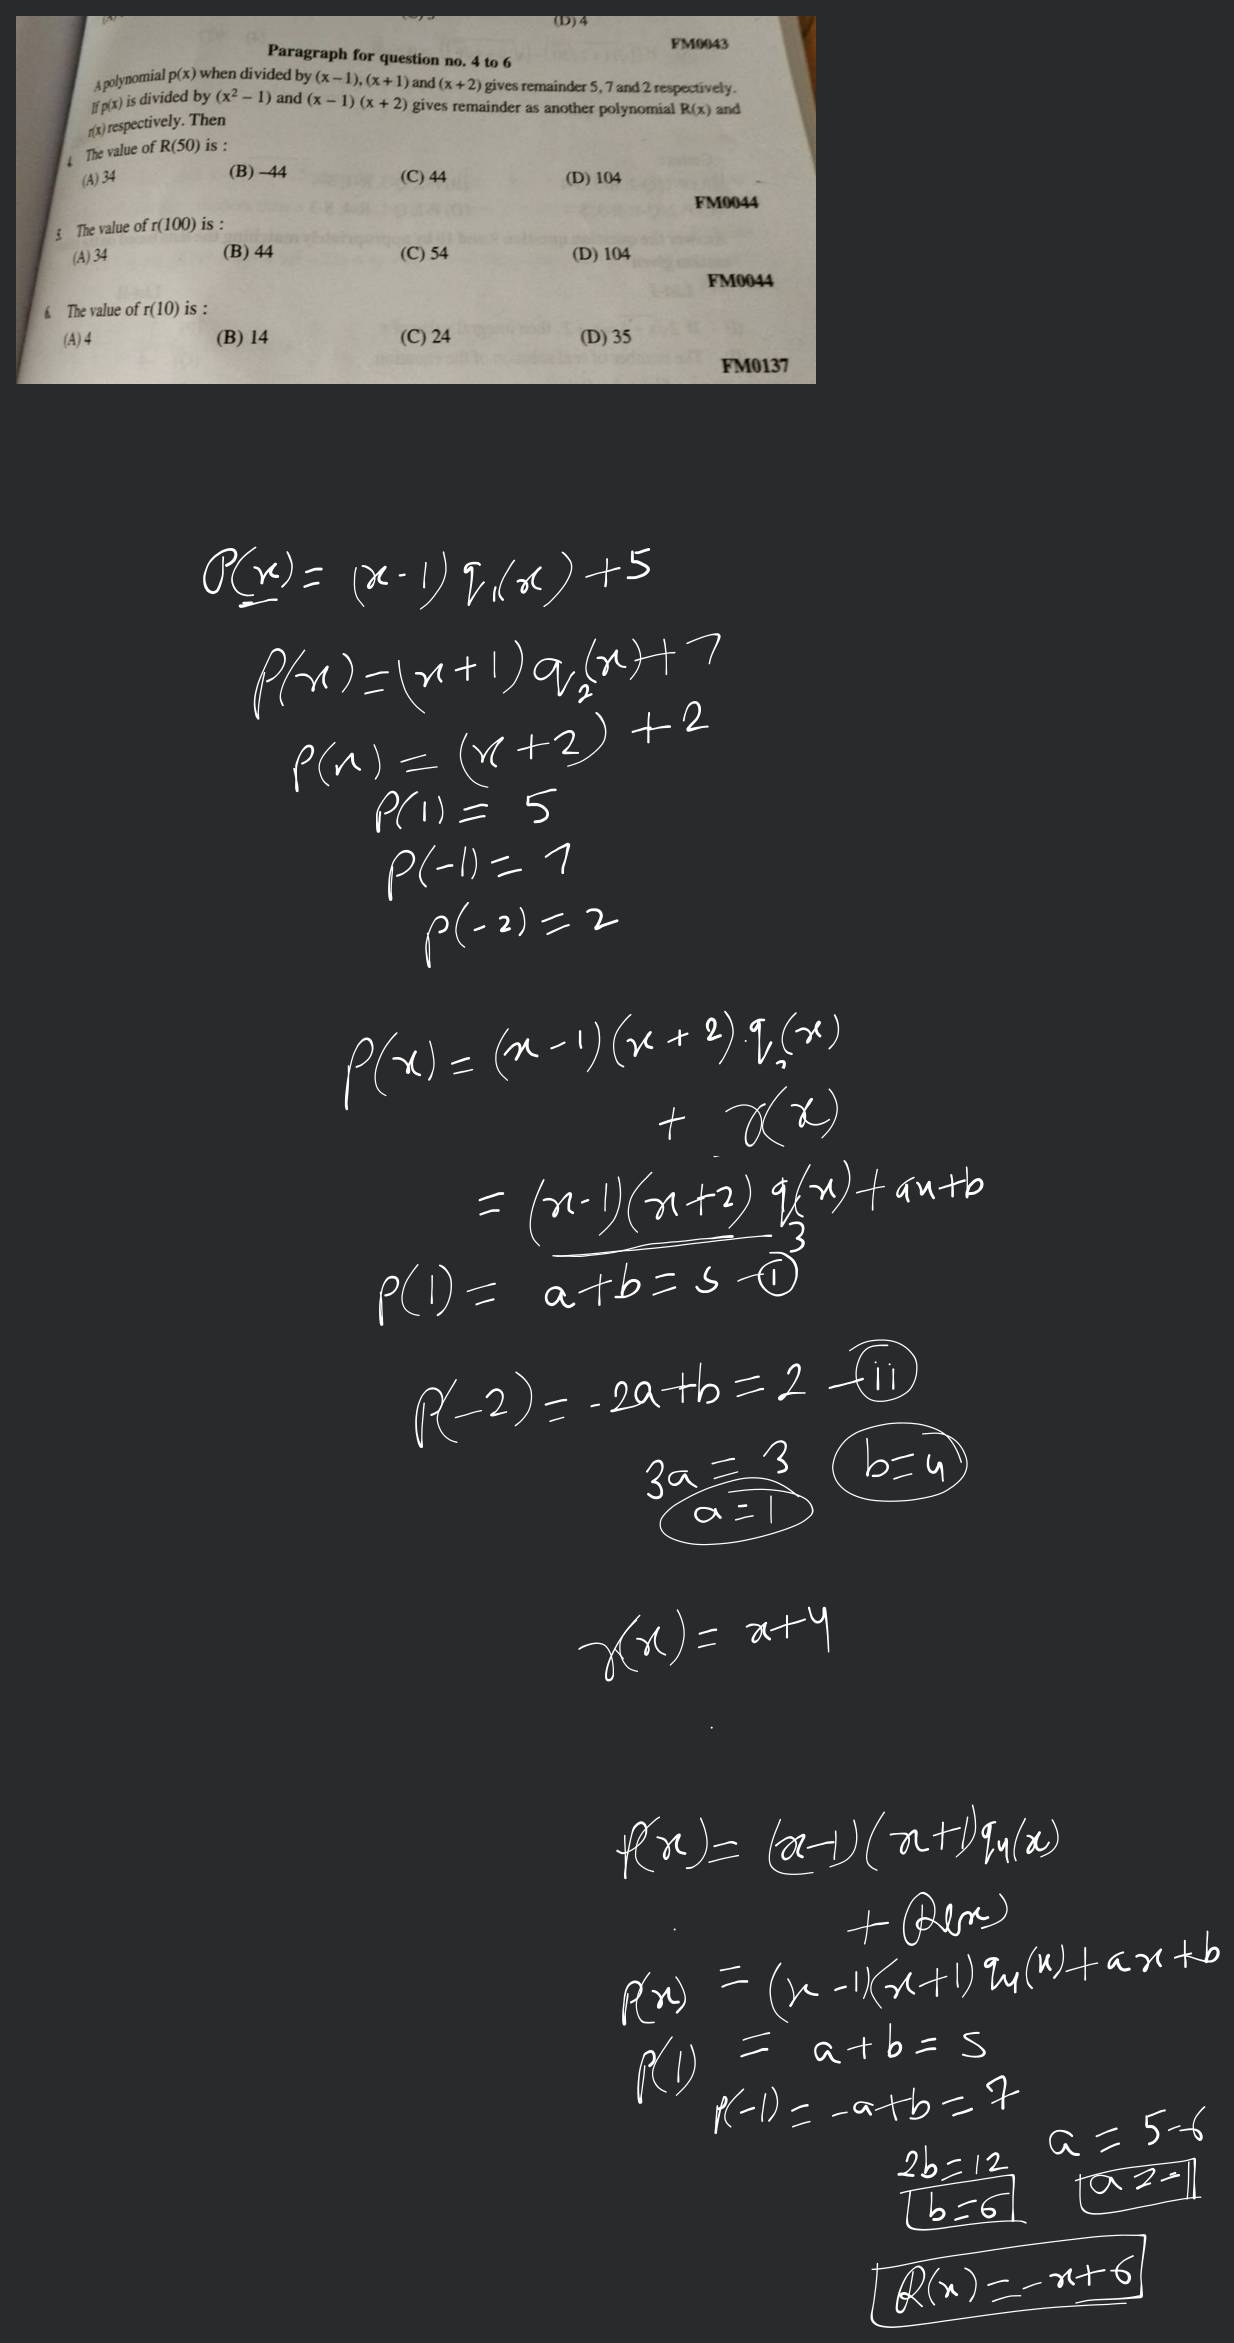 (D) 4
FM0043
Paragraph for question no. 4 to 6
A polynomial p(x) when divided by (x – 1), (x + 1) and (x + 2) gives remainder 5, 7 and 2 respectively.
If p(x) is divided by (x² – 1) and (x – 1) (x + 2) gives remainder as another polynomial R(x) and
r(x) respectively. Then
4. The value of R(50) is :
(A) 34 (B) –44 (C) 44 (D) 104
FM0044
5. The value of r(100) is :
(A) 34 (B) 44 (C) 54 (D) 104
FM0044
6. The value of r(10) is :
(A) 4 (B) 14 (C) 24 (D) 35
FM0137
P(x) = (x-1) q₁(x) + 5
P(x) = (x+1) q₂(x) + 7
P(x) = (x+2) + 2
P(1) = 5
P(-1) = 7
P(-2) = 2
P(x) = (x-1)(x+2) q₃(x)
+ r(x)
= (x-1)(x+2) q₃(x) + ax+b
P(1) = a+b = 5 - ①
P(-2) = -2a+b = 2 - ⅱ
3a = 3 b=4
a = 1
r(x) = x+4
P(x) = (x-1)(x+1)q₄(x)
+ R(x)
P(x) = (x-1)(x+1) q₄(x) + ax+b
P(1) = a+b = 5
P(-1) = -a+b = 7
2b=12 a = 5-6
b=6 a=-1
R(x) = -x+6